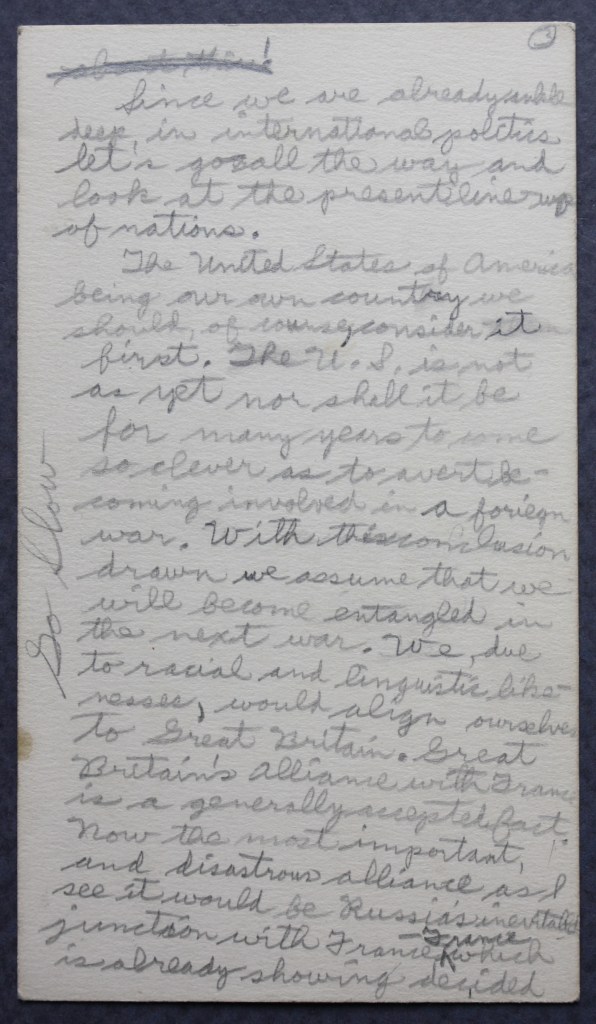 3
Since we are already ankle
deep, in international politics
let's go all the way and
look at the present line up
of nations.
The United States of America
being our own country we
should, of course, consider it
first. The U.S. is not
as yet nor shall it be
for many years to come
so clever as to avert be-
coming involved in a foriegn
war. With this conclusion
drawn we assume that we
will become entangled in
the next war. We, due
to racial and linguistic like-
nesses, would align ourselves
to Great Britain. Great
Britain's alliance with France
is a generally accepted fact.
Now the most important,
and disastrous alliance as I
see it would be Russia's inevitable
junction with France, France which
is already showing decided
Go Slow